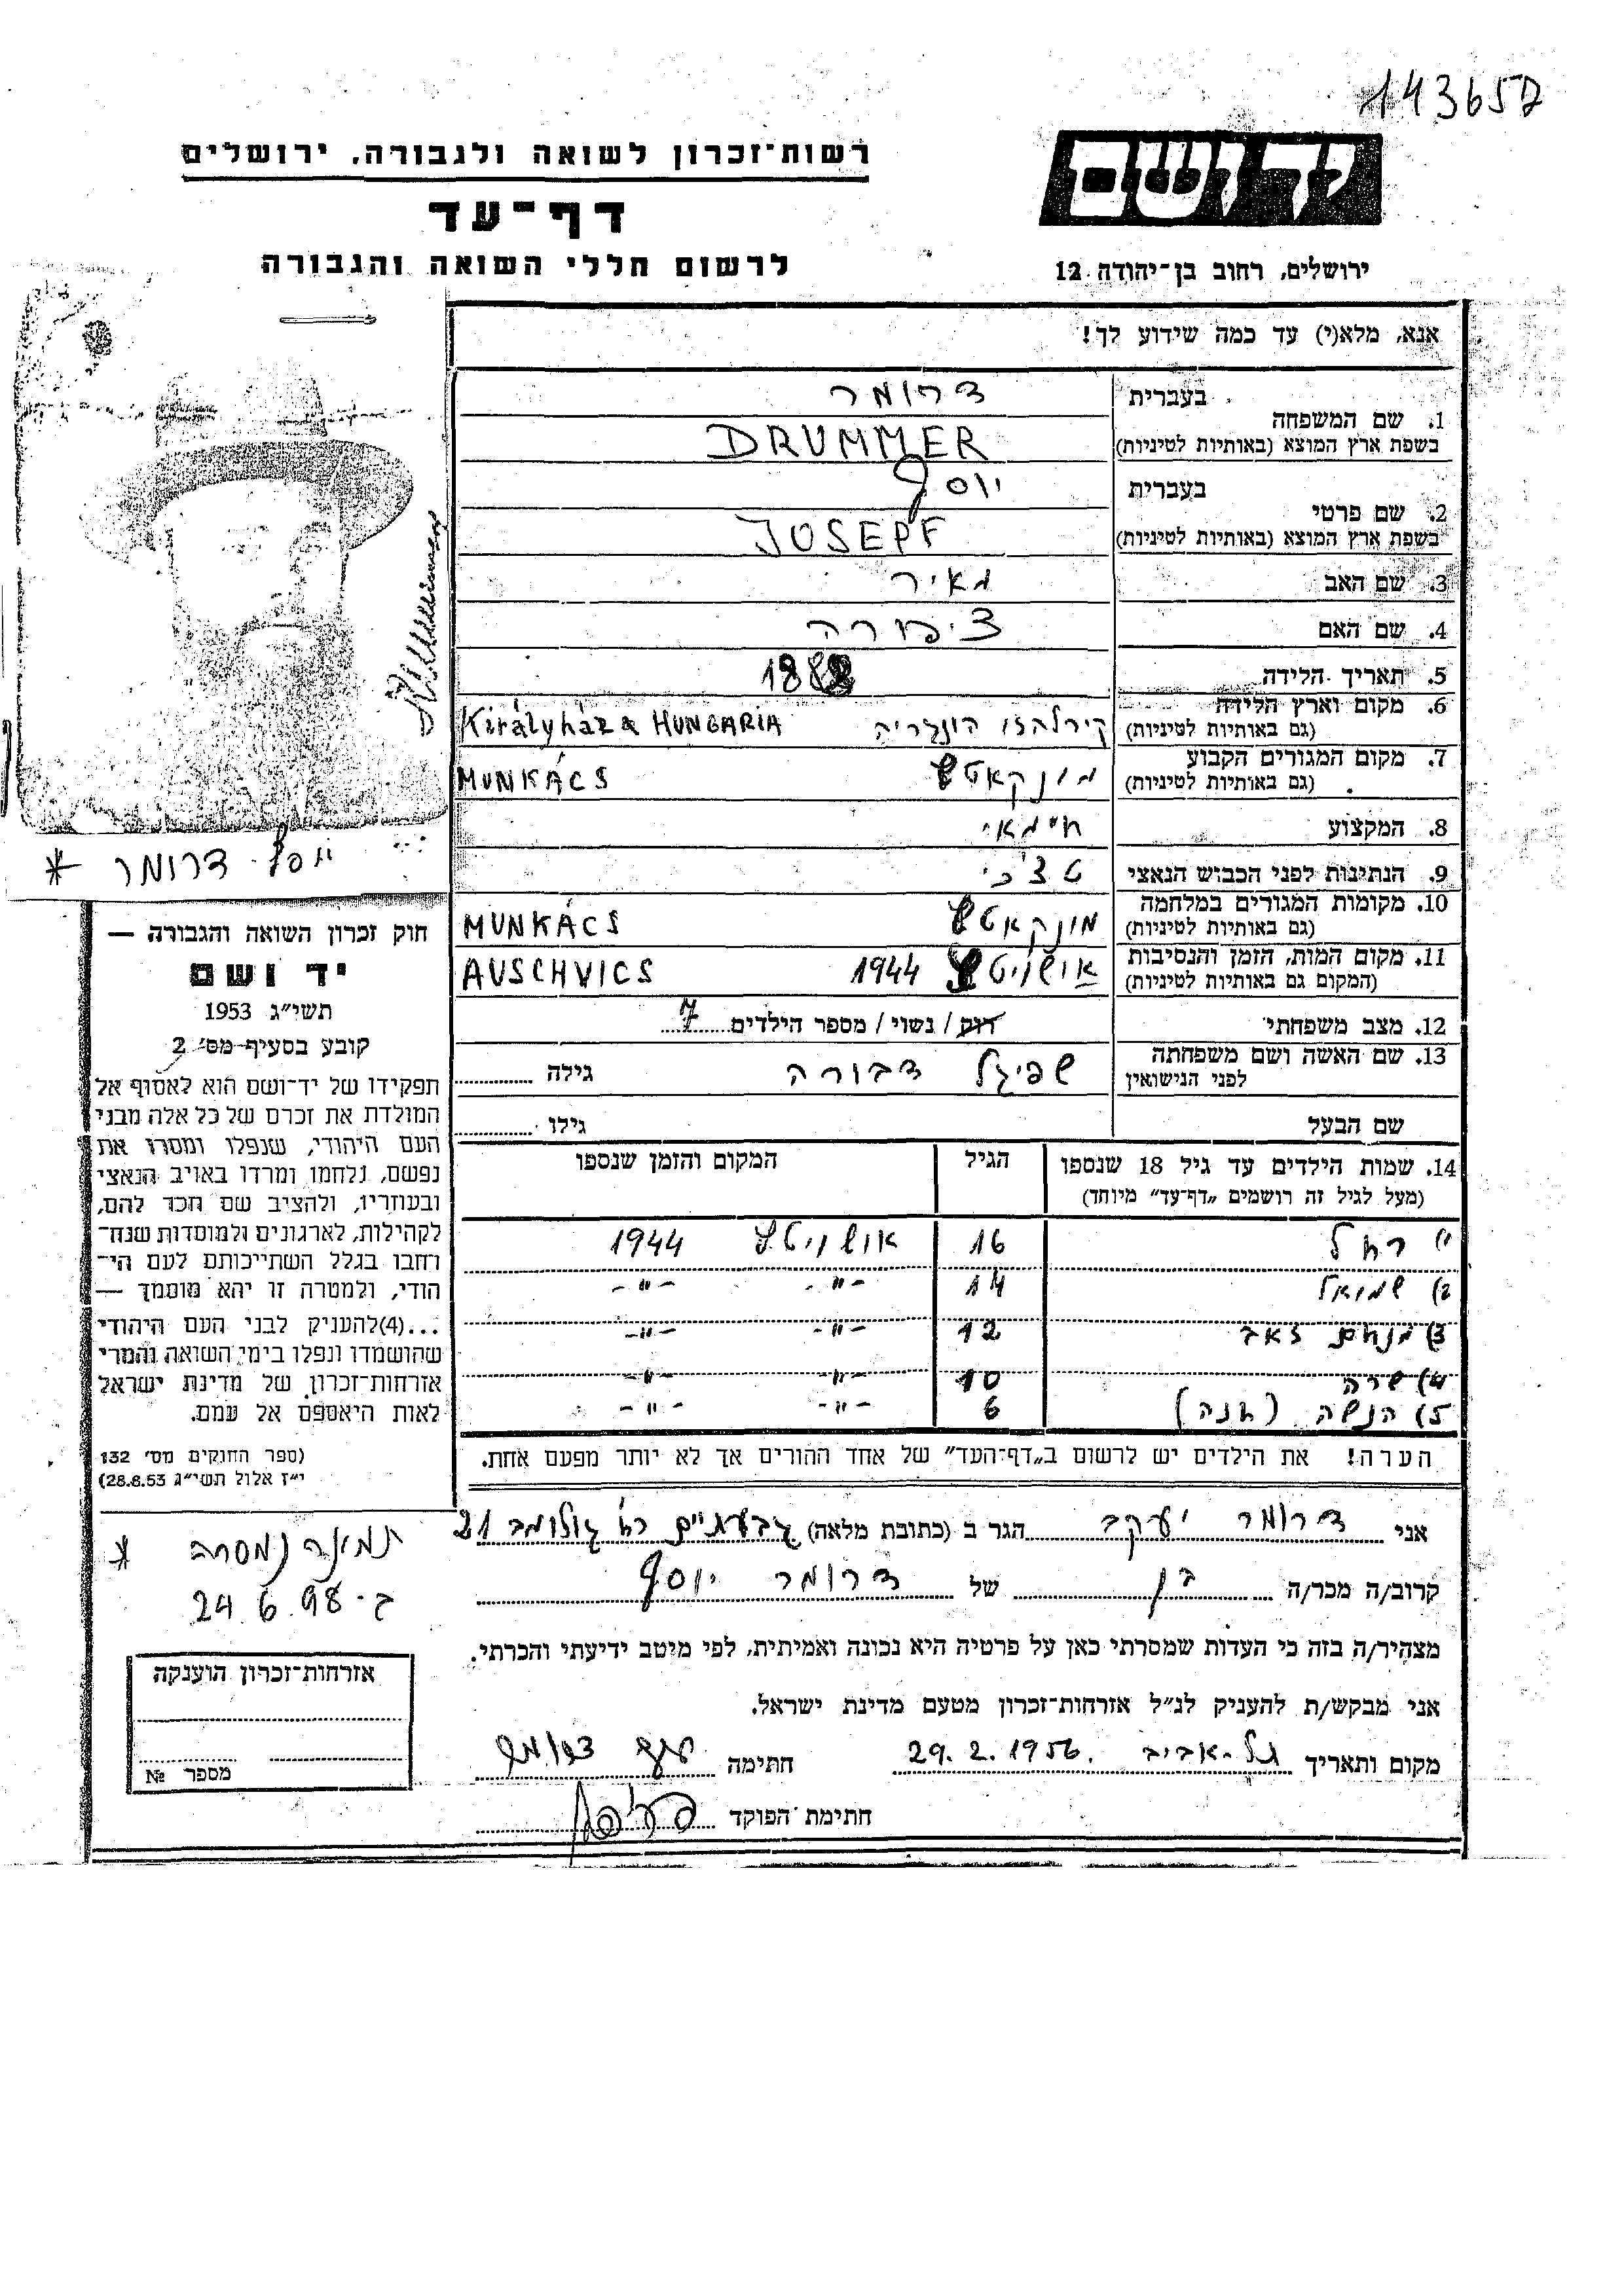 143657
יד ושם
רשות-זכרון לשואה ולגבורה, ירושלים
דף-עד
לרשום חללי השואה והגבורה
ירושלים, רחוב בן-יהודה 12
אנא, מלא(י) עד כמה שידוע לך!
1. שם המשפחה בעברית דרומר
בשפת ארץ המוצא (באותיות לטיניות) DRUMMER
2. שם פרטי בעברית יוסף
בשפת ארץ המוצא (באותיות לטיניות) JOSEPF
3. שם האב מאיר
4. שם האם ציפורה
5. תאריך הלידה 1882
6. מקום וארץ הלידה קירלהזו הונגריה Királyháza HUNGARIA
(גם באותיות לטיניות)
7. מקום המגורים הקבוע מונקאטש MUNKÁCS
(גם באותיות לטיניות)
8. המקצוע
9. הנתינות לפני הכבוש הנאצי צ'כי
10. מקומות המגורים במלחמה מונקאטש MUNKÁCS
(גם באותיות לטיניות)
11. מקום המות, הזמן והנסיבות 1944 AUSCHVICS
(המקום גם באותיות לטיניות)
12. מצב משפחתי רוק / נשוי / מספר הילדים 7
13. שם האשה ושם משפחתה שפיגל דבורה גילה
לפני הנישואין
שם הבעל גילו
14. שמות הילדים עד גיל 18 שנספו הגיל המקום והזמן שנספו
(מעל לגיל זה רושמים „דף-עד" מיוחד)
1) רחל 16 אושויטץ 1944
2) שמואל 14 -"- -"-
3) מנחם זאב 12 -"- -"-
4) שרה 10 -"- -"-
5) הנשה (חנה) 6 -"- -"-
הערה! את הילדים יש לרשום ב„דף-העד" של אחד ההורים אך לא יותר מפעם אחת.
אני דרומר יעקב הגר ב (כתובת מלאה) גבעתיים רח גולומב 21
קרוב/ה מכר/ה בן של דרומר יוסף
מצהיר/ה בזה כי העדות שמסרתי כאן על פרטיה היא נכונה ואמיתית, לפי מיטב ידיעתי והכרתי.
אני מבקש/ת להעניק לנ"ל אזרחות-זכרון מטעם מדינת ישראל.
מקום ותאריך תל-אביב 29.2.1956. חתימה
חתימת הפוקד
יוסף דרומר *
חוק זכרון השואה והגבורה —
יד ושם
תשי"ג 1953
קובע בסעיף מס' 2
תפקידו של יד-ושם הוא לאסוף אל
המולדת את זכרם של כל אלה מבני
העם היהודי, שנפלו ומסרו את
נפשם, נלחמו ומרדו באויב הנאצי
ובעוזריו, ולהציב שם וזכר להם,
לקהילות, לארגונים ולמוסדות שנח-
רבו בגלל השתייכותם לעם הי-
הודי, ולמטרה זו יהא מוסמך —
...(4)להעניק לבני העם היהודי
שהושמדו ונפלו בימי השואה והמרי
אזרחות-זכרון של מדינת ישראל
לאות היאספם אל עמם.
(ספר החוקים מס' 132
י"ז אלול תשי"ג 28.8.53)
* תמונה נמסרה
ב- 24.6.98
אזרחות-זכרון הוענקה
מספר №